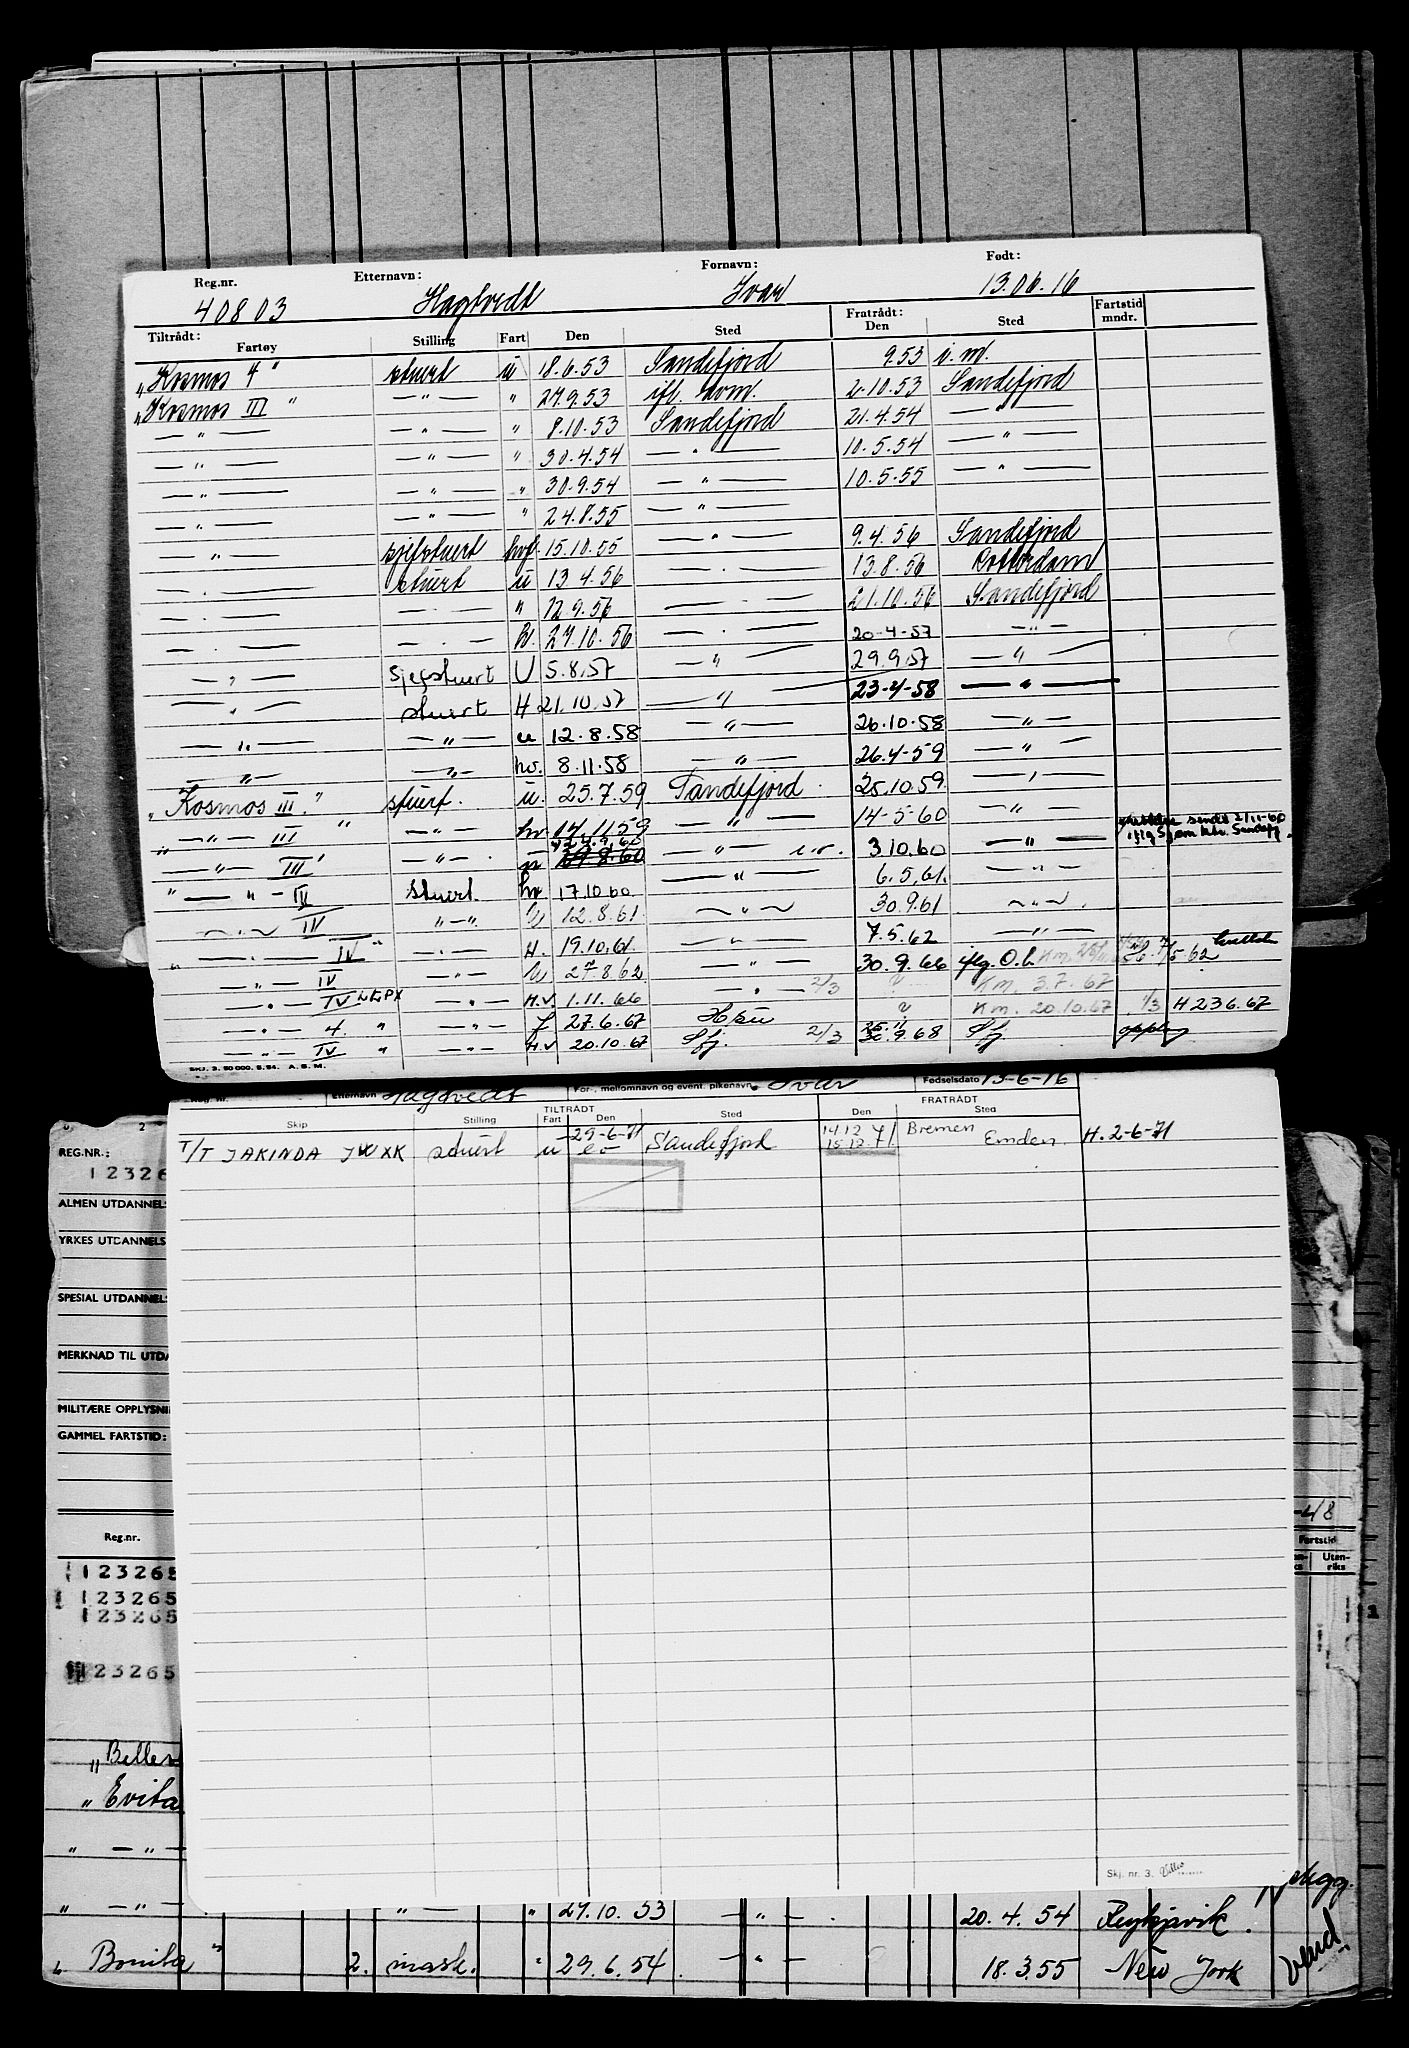 Reg.nr. Etternavn: Fornavn: Født:
40803 Hagtvedt Ivar 13.06.16
Tiltrådt: Fratrådt: Fartstid
Fartøy Stilling Fart Den Sted Den Sted mndr.
"Kosmos 4" stuert u 18.6.53 Sandefjord 9.53 i.m.
"Kosmos III" — " — " 27.9.53 ifl. dom. 2.10.53 Sandefjord
— " — — " — " 8.10.53 Sandefjord 21.4.54 — " —
— " — — " — " 30.4.54 — " — 10.5.54 — " —
— " — — " — " 30.9.54 — " — 10.5.55 — " —
— " — — " — " 24.8.55 — " —
— " — sjefstuert hvf. 15.10.55 — " — 9.4.56 Sandefjord
— " — stuert u 13.4.56 — " — 13.8.56 Rotterdam
— " — — " — " 12.9.56 — " — 21.10.56 Sandefjord
— " — — " — H. 27.10.56 — " — 20-4-57 — " —
— " — Sjefstuert U 5.8.57 — " — 29.9.57 — " —
— " — stuert H 21.10.57 — " — 23-4-58 — " —
— " — — " — u 12.8.58 — " — 26.10.58 — " —
— " — — " — hv. 8.11.58 — " — 26.4-59 — " —
"Kosmos III." stuert. u. 25.7.59 Sandefjord. 25.10.59 — " —
" — " — III " — " — hv 04.11.59 — " — 14-5-60 — " —
" — " — III " — " — u 29.8.60 — " — 3.10.60 — " —
" — " — IV stuert. hv 17.10.60. — " — 6.5.61. — " —
— " — IV — " — U 12.8.61. — " — 30.9.61 — " —
" — " — IV " — " — H. 19.10.61. — " — 7.5.62 — " —
— " — IV — " — U 27.8.62 — " — 30.9.66 iflg. O.b.
— " — IV LLPX — " — H.V. 1.11.66 — " — 2/3 ? Km. 3.7.67
— " — 4. " — " — 27.6.67 ? Km. 20.10.67 1/3 H 23.6.67
— " — IV " — " — H.V 20.10.67 Sfj. 2/3 30.9.68 Sfj
SKJ. 3. 50 000. 5.54. A. S. M.
Reg. nr. Etternavn Hagtvedt For-, mellomnavn og event. pikenavn Ivar Fødselsdato 13-6-16
TILTRÅDT FRATRÅDT
Skip Stilling Fart Den Sted Den Sted
T/T JAKINDA JWXK stuert u 29-6-71 Sandefjord 14.12 15.12.71 Bremen Emden. H. 2-6-71
Skj. nr. 3.
2
REG.NR.:
123265
ALMEN UTDANNELS
YRKES UTDANNELS
SPESIAL UTDANNEL
MERKNAD TIL UTDA
MILITÆRE OPPLYSNI
GAMMEL FARTSTID:
-48
Reg.nr. Fartstid
Uten-
riks
123265
123265
123265
123265
1
"Belle
"Evita
" — " —
" — " 27.10.53 — " — . 20.4.54 Reykjavik.
" Bonita " 2. mask. " 29.6.54. — " — 18.3.55 New York
vend.